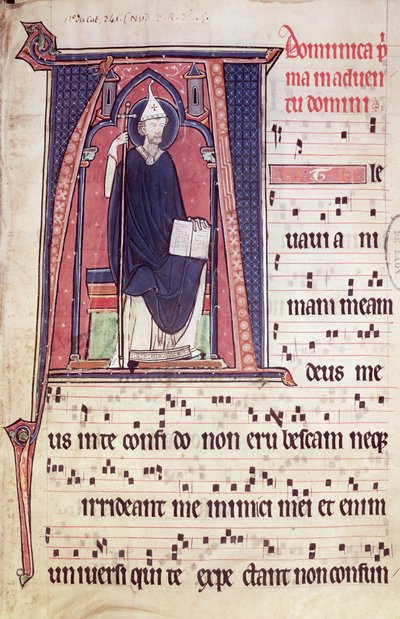 du Cat. 241.
Dominica p
ma in aduen
tu domini
A
le
uaui a ni
mam meam
deus me
us in te confi do non eru bescam neq;
irrideant me inimici mei et enim
uniuersi qui te expe ctant non confun